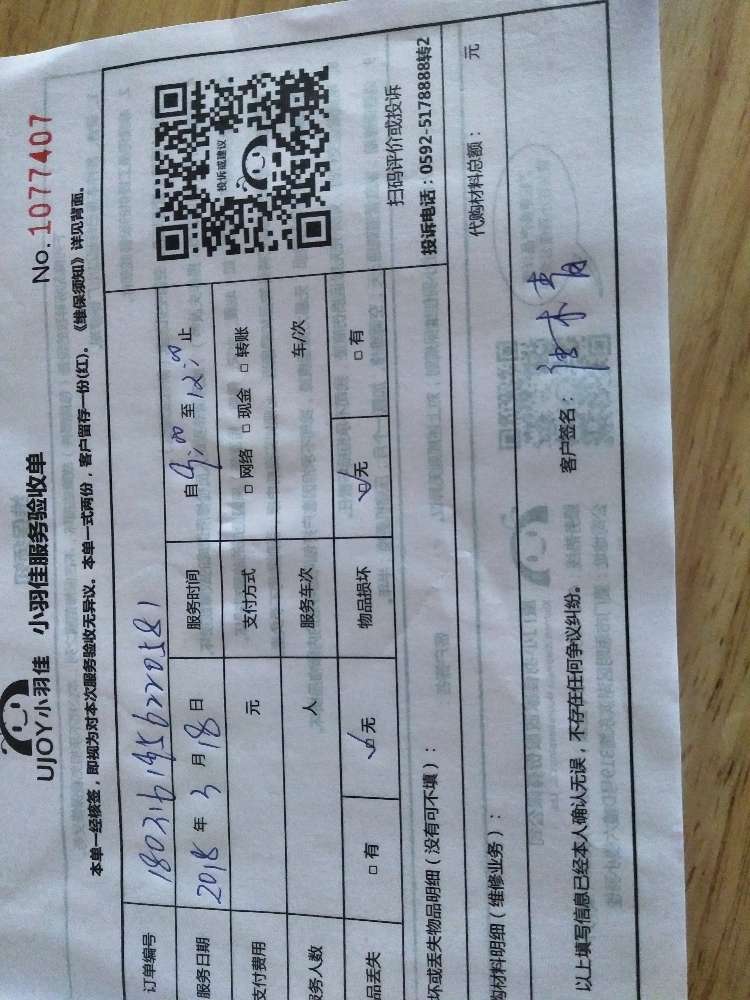 UJOY小羽佳 小羽佳服务验收单
No. 1077407
本单一经核签，即视为对本次服务验收无异议。本单一式两份，客户留存一份(红)。《维保须知》详见背面。
订单编号
服务日期 2018 年 3 月 18 日 服务时间 自 9:00 至 12:00 止
支付费用 元 支付方式 □ 网络 □ 现金 □ 转账
务人数 人 服务车次 车/次
品丢失 □ 有 ☑ 无 物品损坏 ☑ 无 □ 有
投诉或建议
扫码评价或投诉
投诉电话：0592-5178888转2
坏或丢失物品明细（没有可不填）：
购材料明细（维修业务）： 代购材料总额： 元
以上填写信息已经本人确认无误，不存在任何争议纠纷。 客户签名：